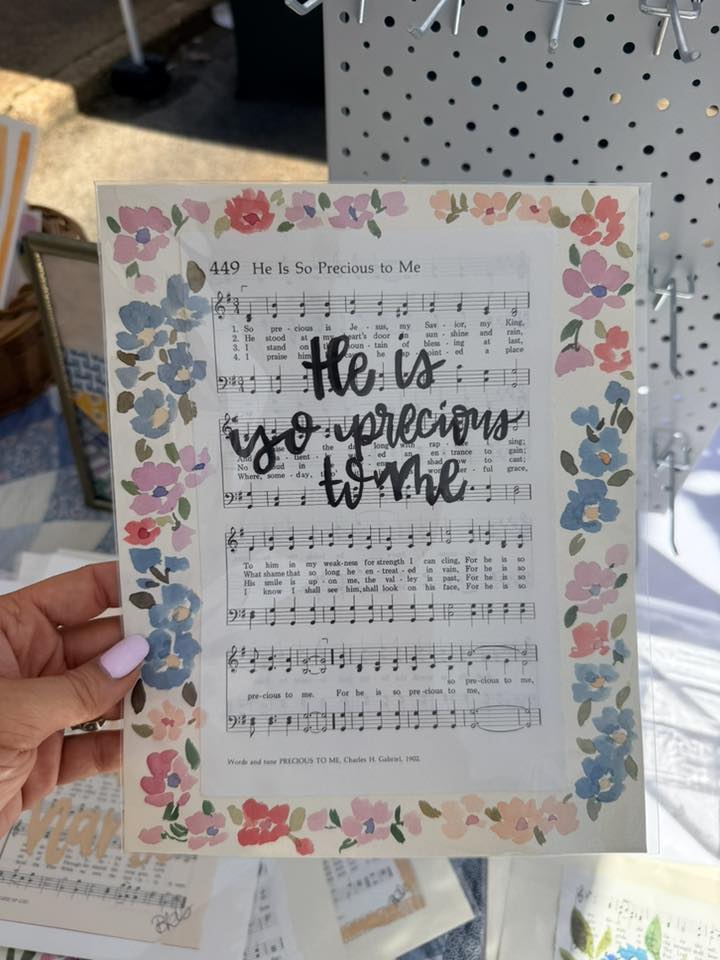 449 He Is So Precious to Me
1. So pre - cious is Je - sus, my Sav - ior, my King,
2. He stood at my heart's door in sun - shine and rain,
3. I stand on the moun - tain of bless - ing at last,
4. I praise him he ap - point - ed a place
He is
so precious
to me.
the day long with rap sing;
And en - tient ed an en - trance to gain;
No oud in en shad ow to cast;
Where, some - day, won der - ful grace,
To him in my weak-ness for strength I can cling, For he is so
What shame that so long he en - treat - ed in vain, For he is so
His smile is up - on me, the val - ley is past, For he is so
I know I shall see him, shall look on his face, For he is so
so pre-cious to me,
pre-cious to me. For he is so pre-cious to me,
Words and tune PRECIOUS TO ME, Charles H. Gabriel, 1902.